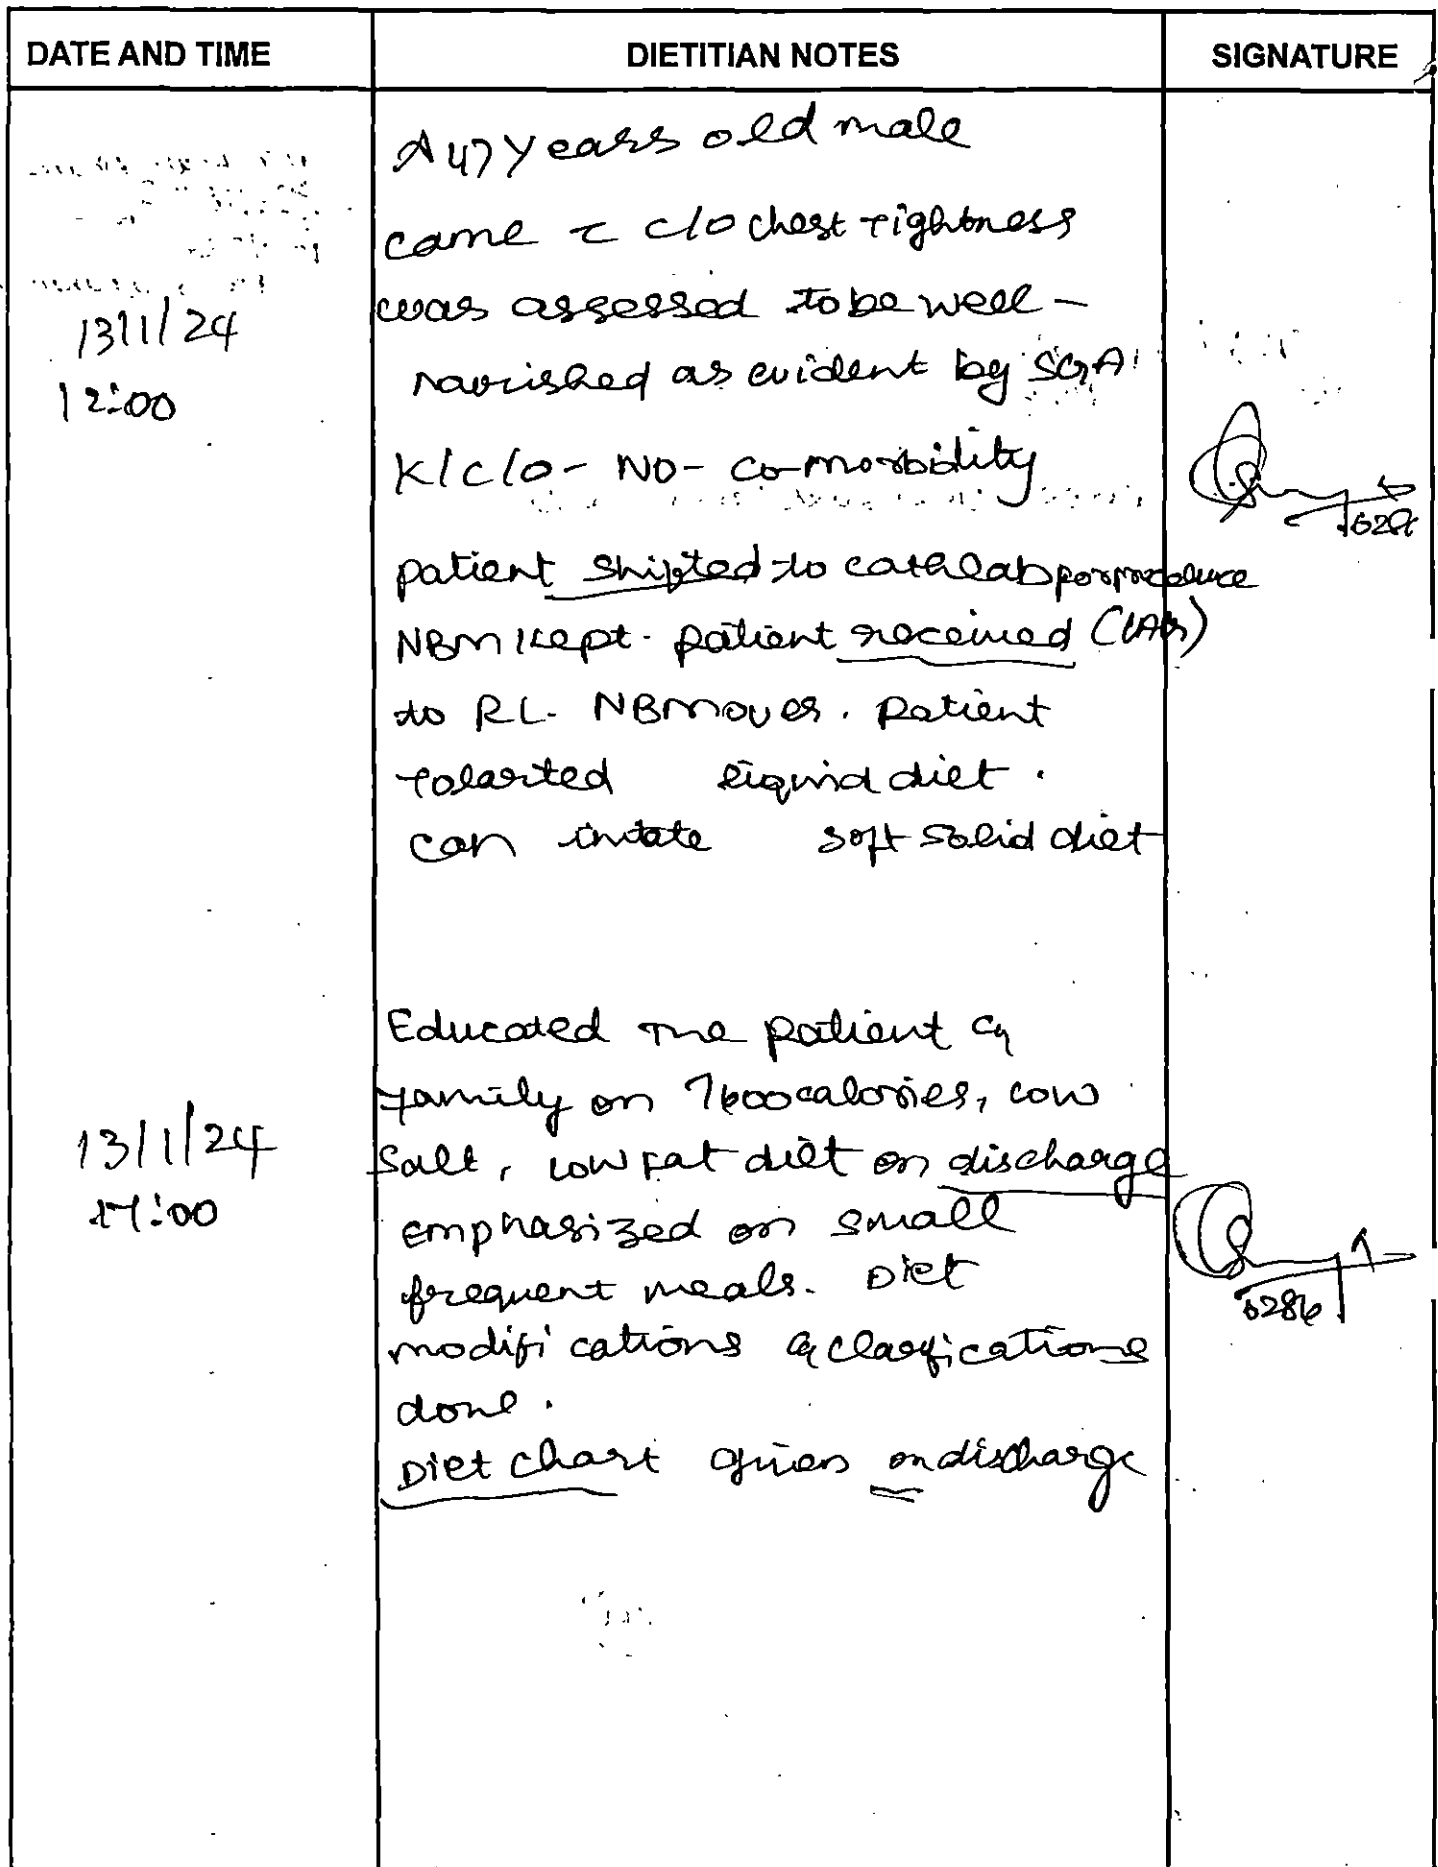 DATE AND TIME
DIETITIAN NOTES
SIGNATURE
A 47 Years old male
came c̄ c/o chest tightness
was assessed to be well -
nourished as evident by SGA
13/1/24
12:00
K/C/O - NO - co-morbidity
patient shifted to cathlab for procedure
NBM kept. patient received (CAG)
to RL. NBM over. Patient
tolarited liquid diet.
can intate soft solid diet
Educated the patient &
family on calories, low
13/1/24
17:00
Salt, low fat diet on discharge
emphasized on small
frequent meals. Diet
6286
modifications & clarifications
done.
Diet chart given on discharge